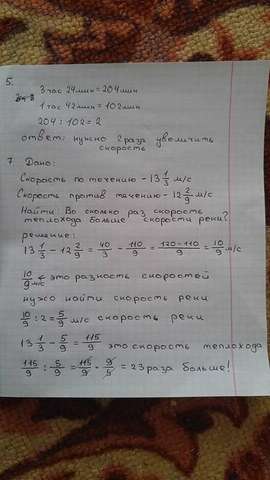 5.
3 час 24 мин = 204 мин
1 час 42 мин = 102 мин
204 : 102 = 2
ответ: нужно 2 раза увеличить
скорость
7. Дано:
Скорость по течению - 13 1/3 м/с
Скорость против течению - 12 2/9 м/с
Найти: Во сколько раз скорость
теплохода больше скорости реки?
решение:
13 1/3 - 12 2/9 = 40/3 - 110/9 = 120-110/9 = 10/9 м/с
10/9 м/с это разность скоростей
нужо найти скорость реки
10/9 : 2 = 5/9 м/с скорость реки
13 1/3 - 5/9 = 115/9 это скорость теплохода
115/9 : 5/9 = 115/9 · 9/5 = 23 раза больше!